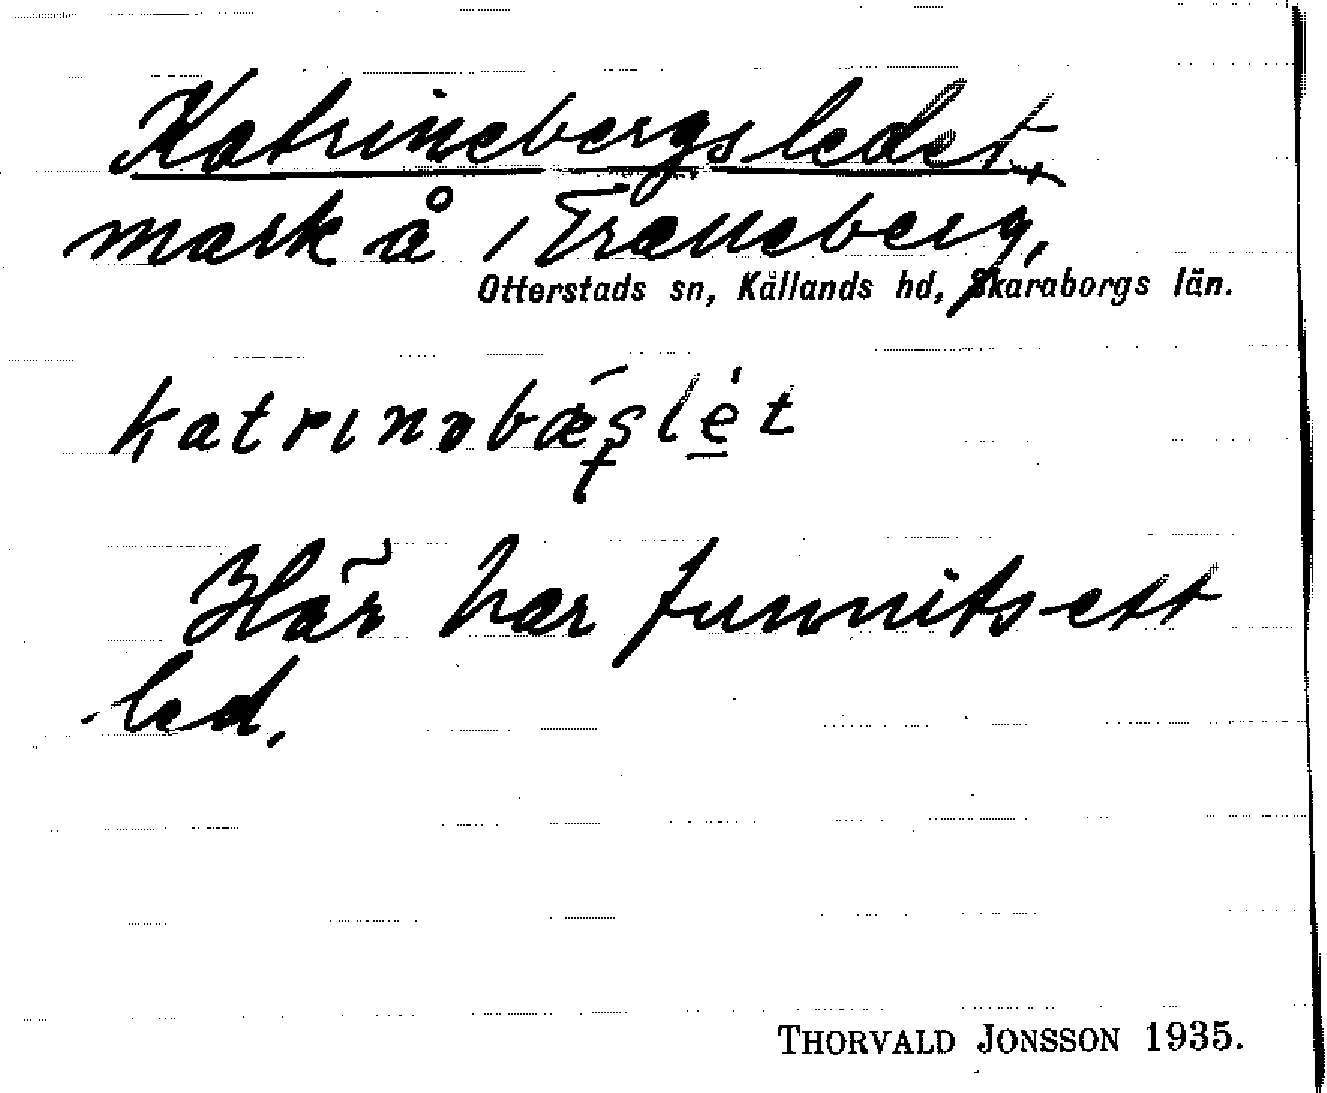 Katrinebergsledet
mark å 1 Traneberg,
Otterstads sn, Kållands hd, Skaraborgs län.
katrinəbæʂlèt
Här har funnits ett
led.
THORVALD JONSSON 1935.